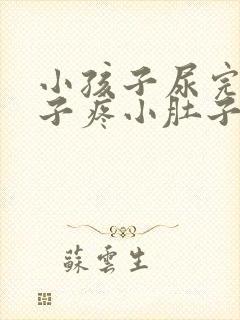 小孩子尿完
子疼小肚子
蘇雲生